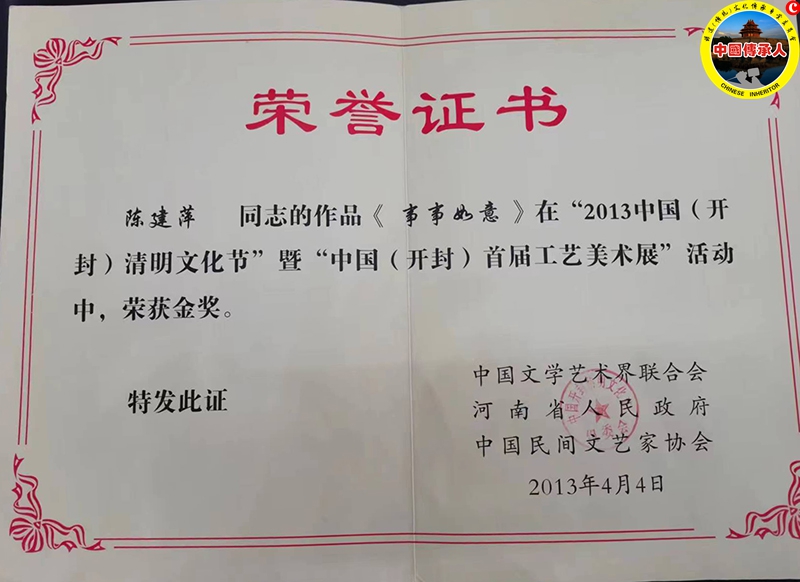 中國傳承人
CHINESE INHERITOR
C
荣誉证书
陈建萍 同志的作品《 事事如意 》在“2013中国（开
封）清明文化节”暨“中国（开封）首届工艺美术展”活动
中，荣获金奖。
特发此证
中国文学艺术界联合会
河南省人民政府
中国民间文艺家协会
2013年4月4日